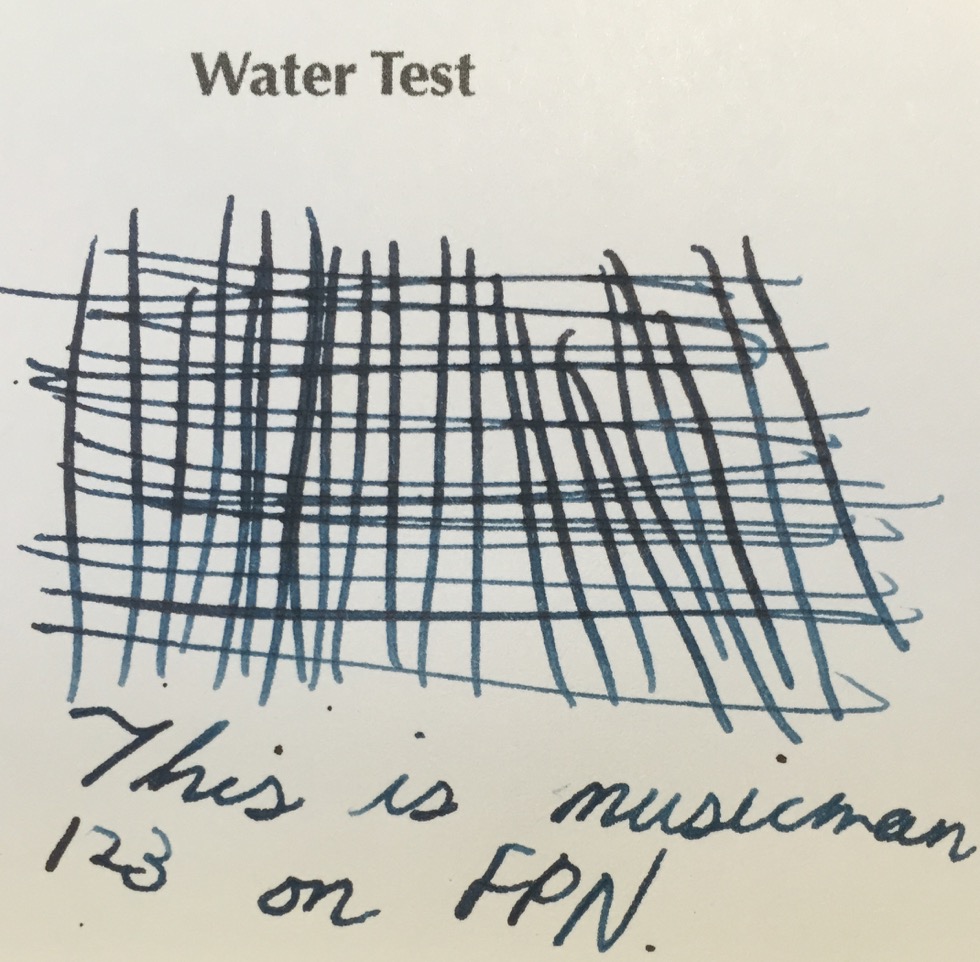 Water Test
This is musicman
123 on FPN.